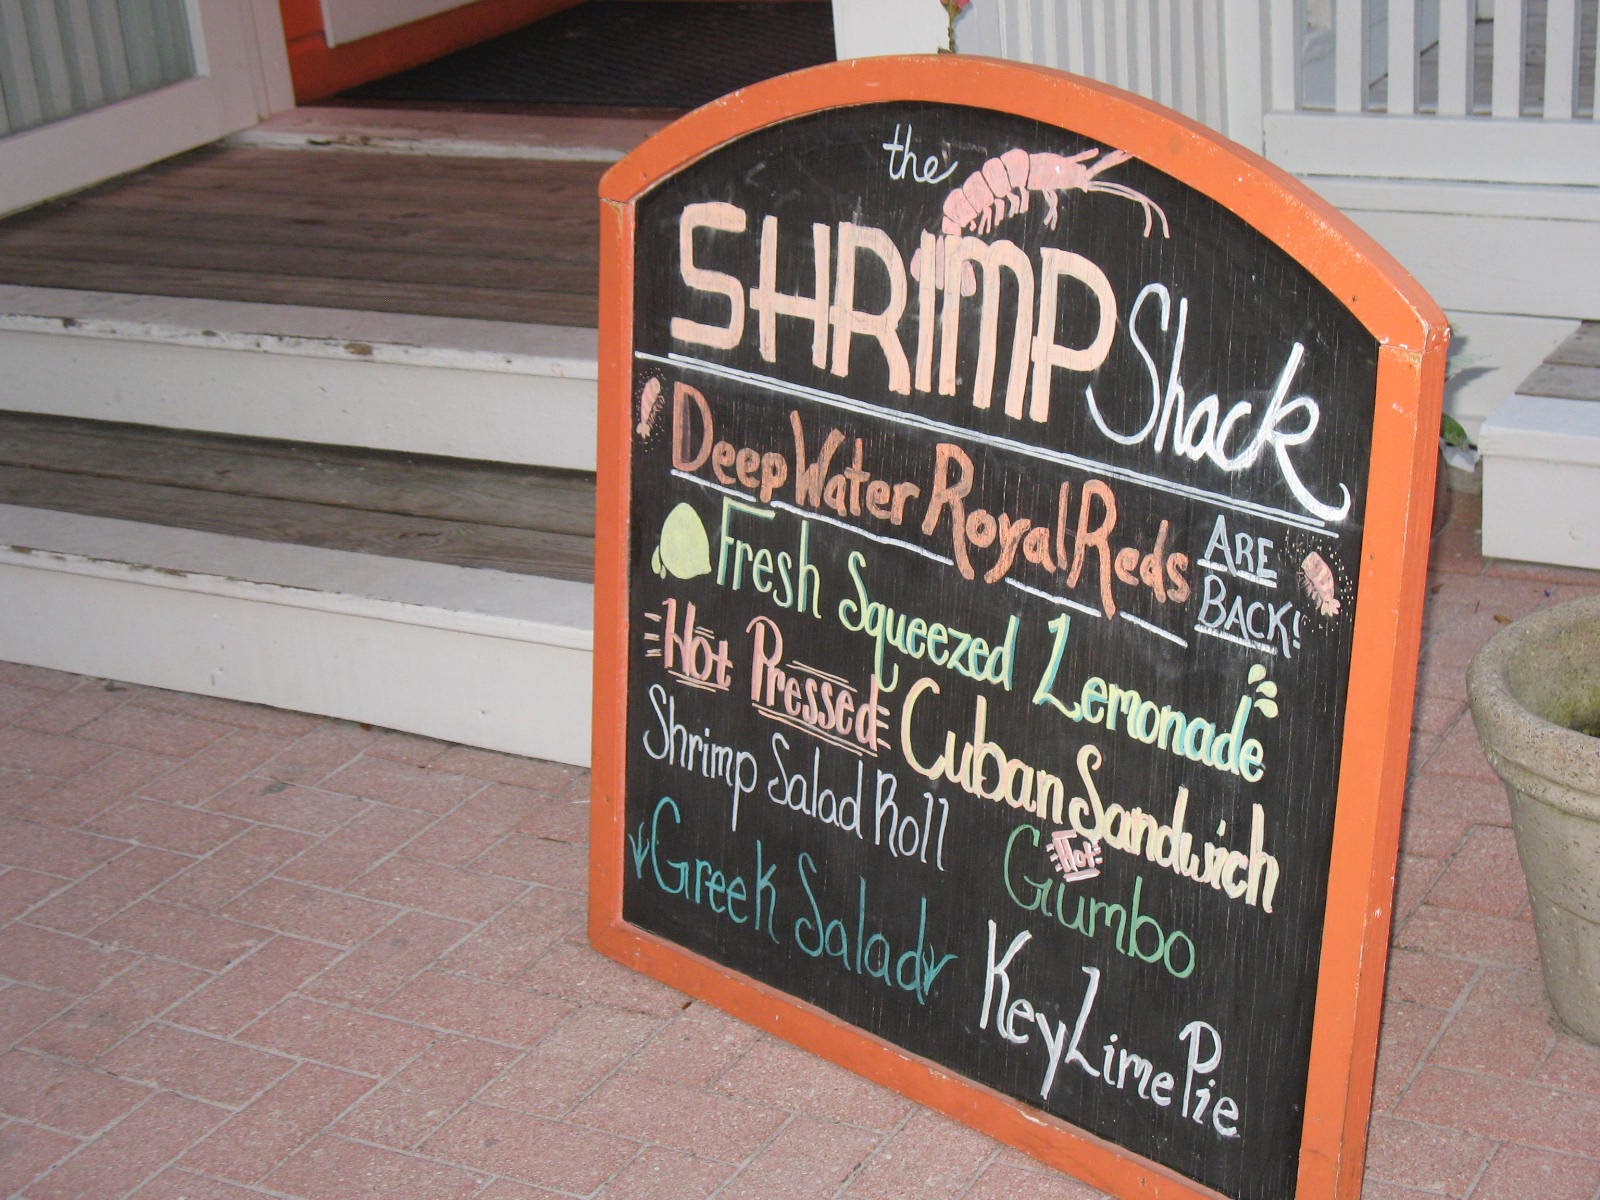 the
SHRIMP Shack
Deep Water Royal Reds ARE BACK!
Fresh Squeezed Lemonade
Hot Pressed Cuban Sandwich
Shrimp Salad Roll
Hot Gumbo
Greek Salad
Key Lime Pie